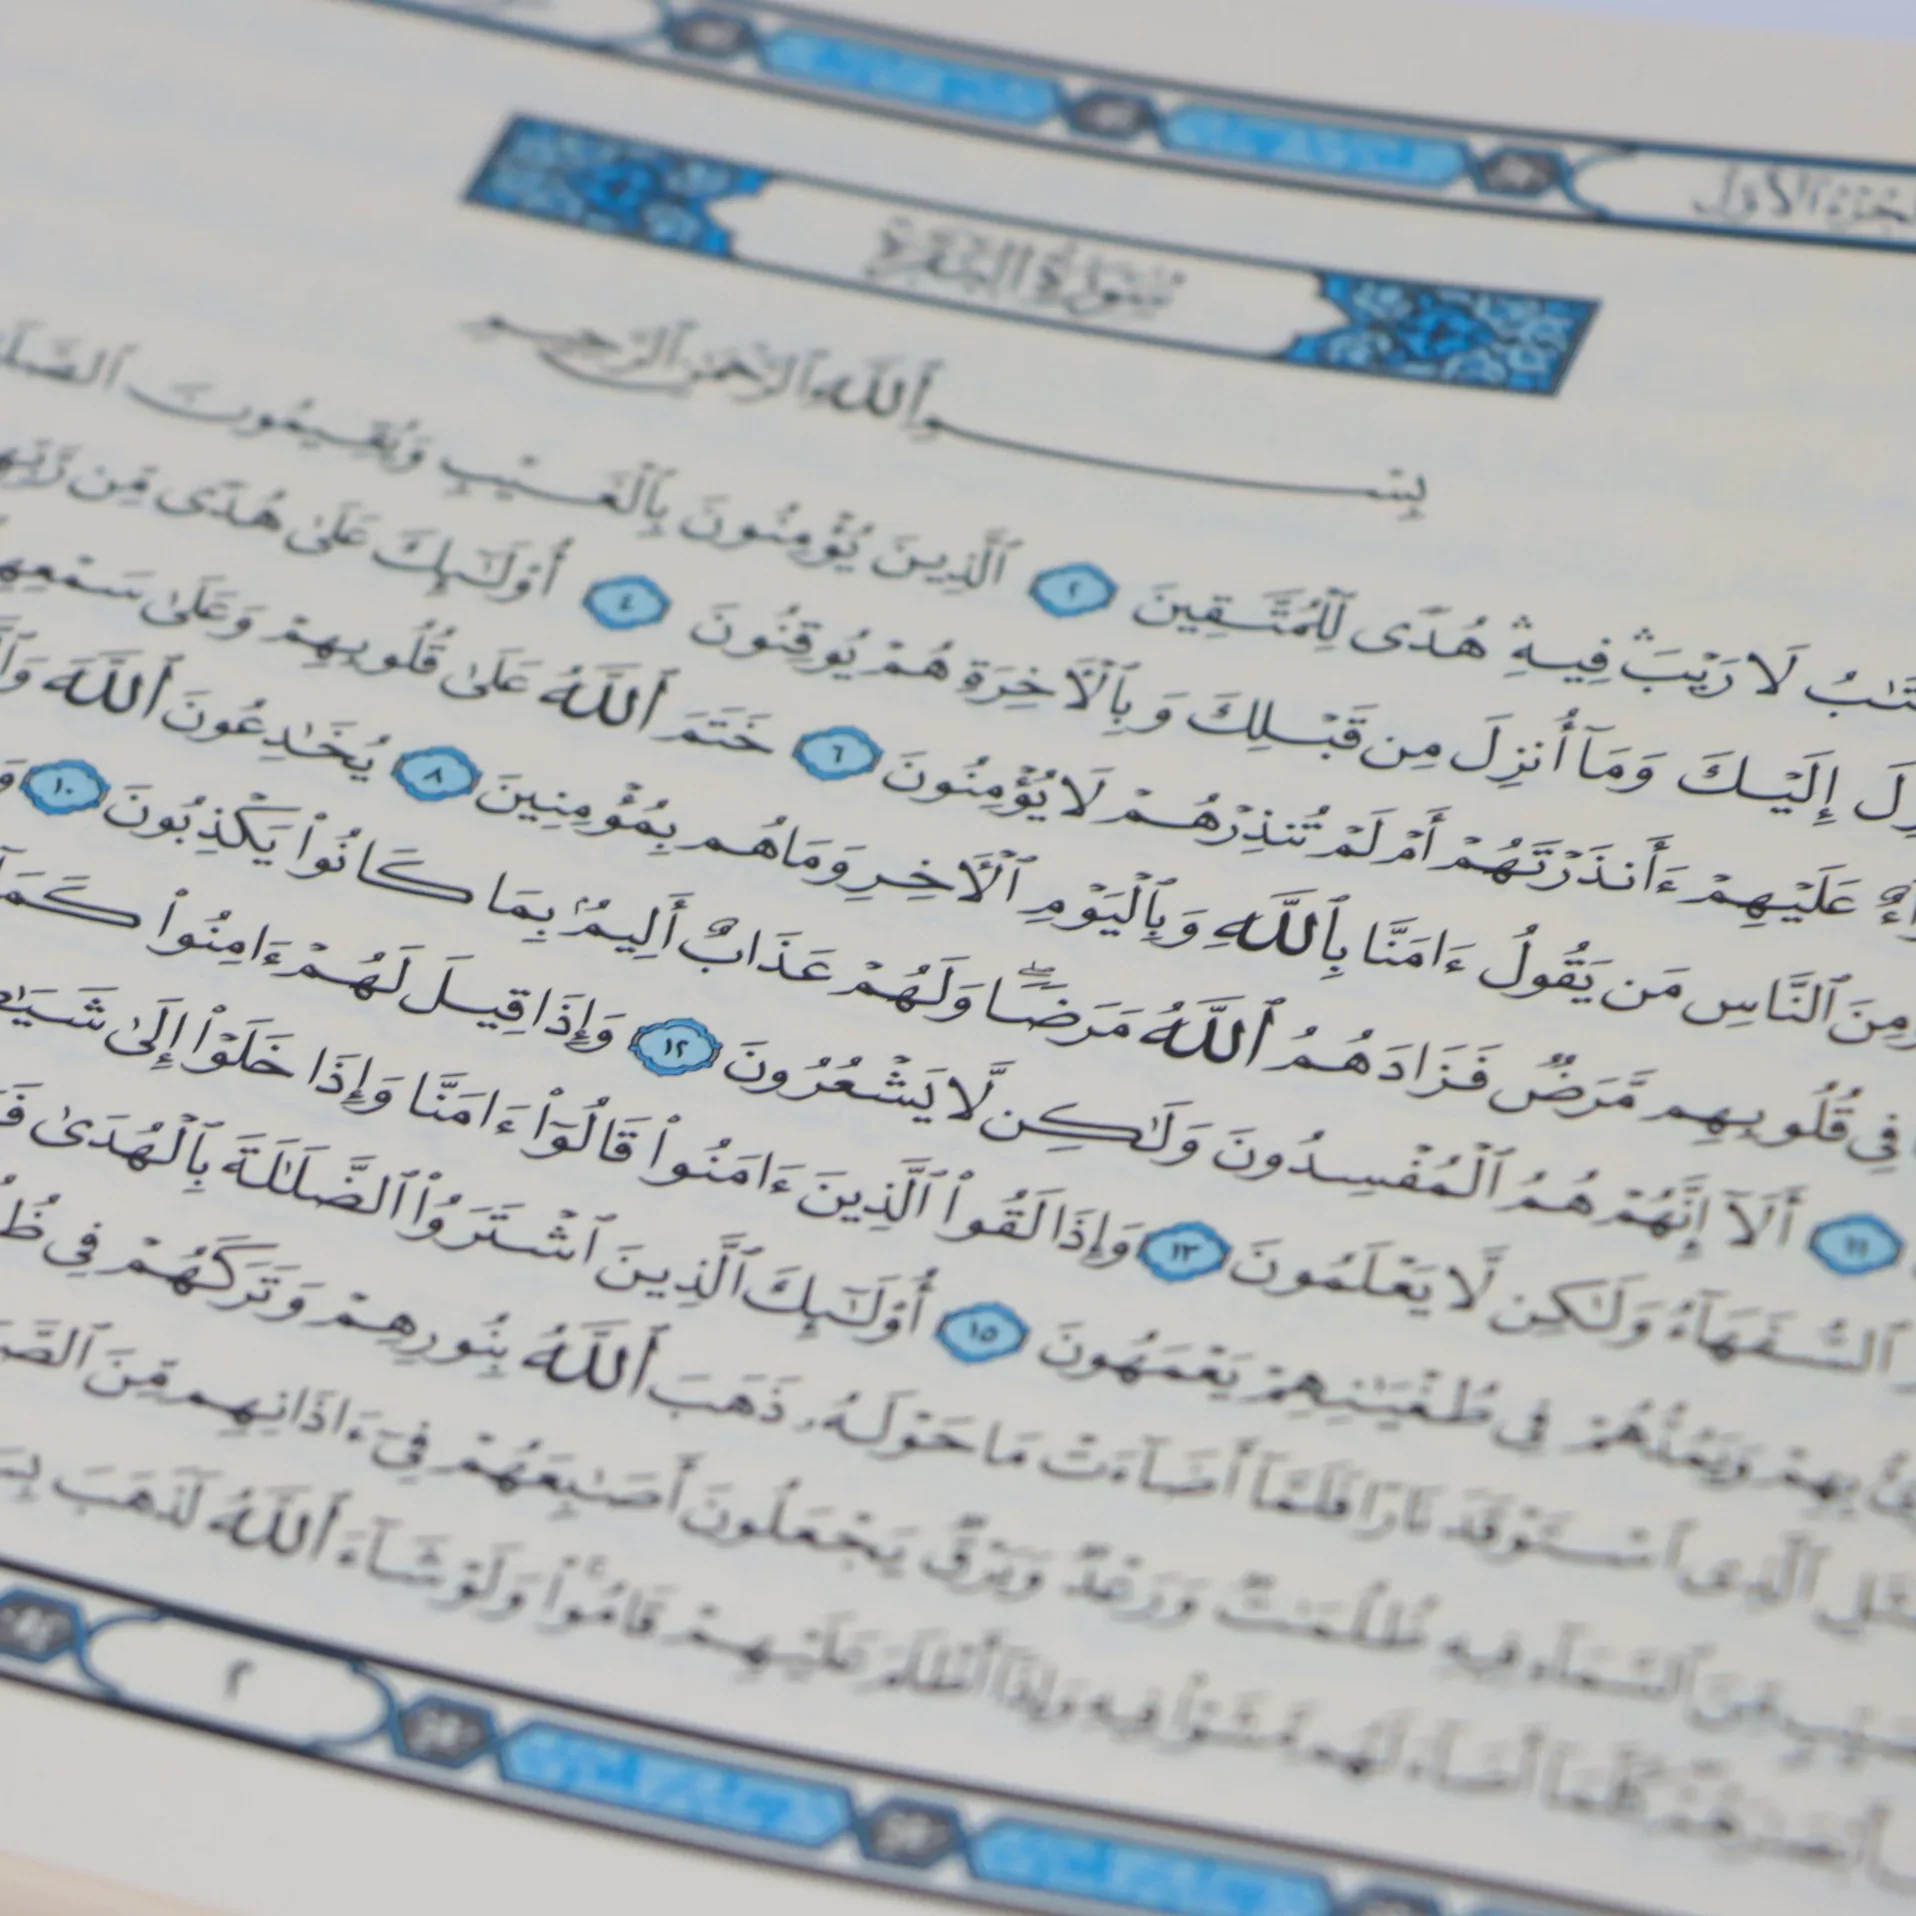 الجزء الأول
سورة البقرة
بِسْمِ ٱللَّهِ ٱلرَّحْمَٰنِ ٱلرَّحِيمِ
لَا رَيْبَ ۛ فِيهِ ۛ هُدًى لِّلْمُتَّقِينَ ٢ ٱلَّذِينَ يُؤْمِنُونَ بِٱلْغَيْبِ وَيُقِيمُونَ
إِلَيْكَ وَمَآ أُنزِلَ مِن قَبْلِكَ وَبِٱلْأَخِرَةِ هُمْ يُوقِنُونَ ٤ أُو۟لَٰٓئِكَ عَلَىٰ هُدًى مِّن
عَلَيْهِمْ ءَأَنذَرْتَهُمْ أَمْ لَمْ تُنذِرْهُمْ لَا يُؤْمِنُونَ ٦ خَتَمَ ٱللَّهُ عَلَىٰ قُلُوبِهِمْ وَعَلَىٰ
مِنَ ٱلنَّاسِ مَن يَقُولُ ءَامَنَّا بِٱللَّهِ وَبِٱلْيَوْمِ ٱلْأَخِرِ وَمَا هُم بِمُؤْمِنِينَ ٨ يُخَٰدِعُونَ ٱللَّهَ
فِى قُلُوبِهِم مَّرَضٌ فَزَادَهُمُ ٱللَّهُ مَرَضًا ۖ وَلَهُمْ عَذَابٌ أَلِيمٌۢ بِمَا كَانُوا۟ يَكْذِبُونَ ١٠
١١ أَلَآ إِنَّهُمْ هُمُ ٱلْمُفْسِدُونَ وَلَٰكِن لَّا يَشْعُرُونَ ١٢ وَإِذَا قِيلَ لَهُمْ ءَامِنُوا۟
ٱلسُّفَهَآءُ وَلَٰكِن لَّا يَعْلَمُونَ ١٣ وَإِذَا لَقُوا۟ ٱلَّذِينَ ءَامَنُوا۟ قَالُوٓا۟ ءَامَنَّا وَإِذَا خَلَوْا۟ إِلَىٰ
بِهِمْ وَيَمُدُّهُمْ فِى طُغْيَٰنِهِمْ يَعْمَهُونَ ١٥ أُو۟لَٰٓئِكَ ٱلَّذِينَ ٱشْتَرَوُا۟ ٱلضَّلَٰلَةَ بِٱلْهُدَىٰ
ٱلَّذِى ٱسْتَوْقَدَ نَارًا فَلَمَّآ أَضَآءَتْ مَا حَوْلَهُۥ ذَهَبَ ٱللَّهُ بِنُورِهِمْ وَتَرَكَهُمْ فِى
مِّنَ ٱلسَّمَآءِ فِيهِ ظُلُمَٰتٌ وَرَعْدٌ وَبَرْقٌ يَجْعَلُونَ أَصَٰبِعَهُمْ فِىٓ ءَاذَانِهِم مِّنَ
كُلَّمَآ أَضَآءَ لَهُم مَّشَوْا۟ فِيهِ وَإِذَآ أَظْلَمَ عَلَيْهِمْ قَامُوا۟ ۚ وَلَوْ شَآءَ ٱللَّهُ لَذَهَبَ
٢